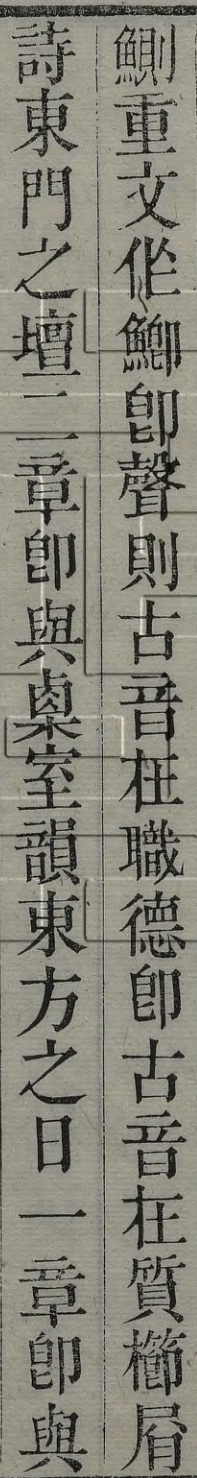 鰂重文作鯽卽聲則古音在職德卽古音在質櫛屑
詩東門之壇二章卽與㮚室韻東方之日一章卽與